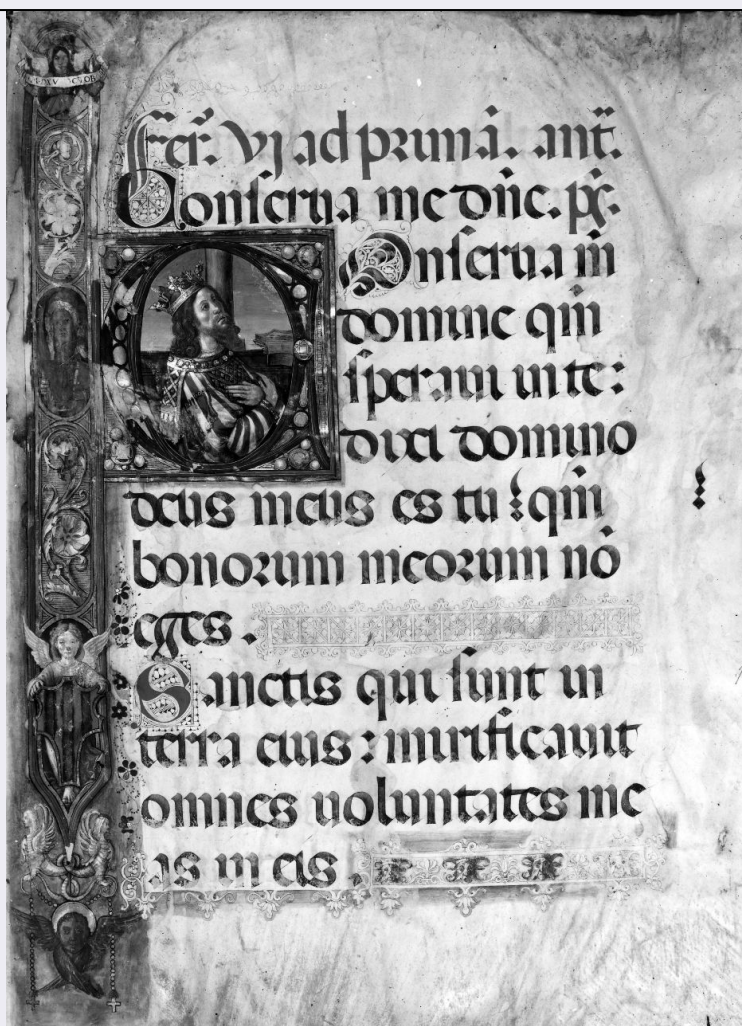 Fer̃. vj ad primā. ant̃.
Conserua me dñe. p̃s.
Onserua m̄
domine qm̄
speraui in te:
dixi domino
deus meus es tu : qm̄
bonorum meorum nō
eges.
Sanctis qui sunt in
terra eius: mirificauit
omnes uoluntates me
as in eis.